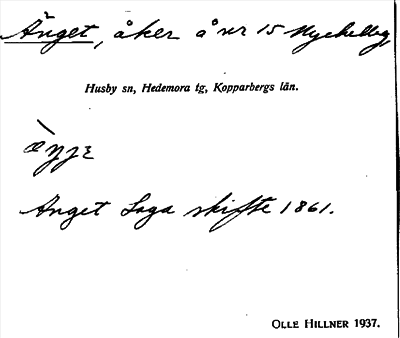 Änget, åker å nr 15 Myckelby
Husby sn, Hedemora tg, Kopparbergs län.
Änget Laga skifte 1861.
OLLE HILLNER 1937.